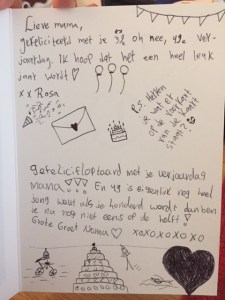 Lieve mama,
gefeliciteerd met je oh nee, 49e ver-
jaardag. Ik hoop dat het een heel leuk
jaar wordt ♡
x x Rosa
P.S. Herken
je wat er
op de
van de kaart
staat?
gefelicifloptaard met je verjaardag
mama!!! En 49 is eigenlijk nog heel
jong want als je honderd wordt dan ben
je nu nog niet eens op de helft!
Grote Groet Nonna ♡ xoxoxoxo